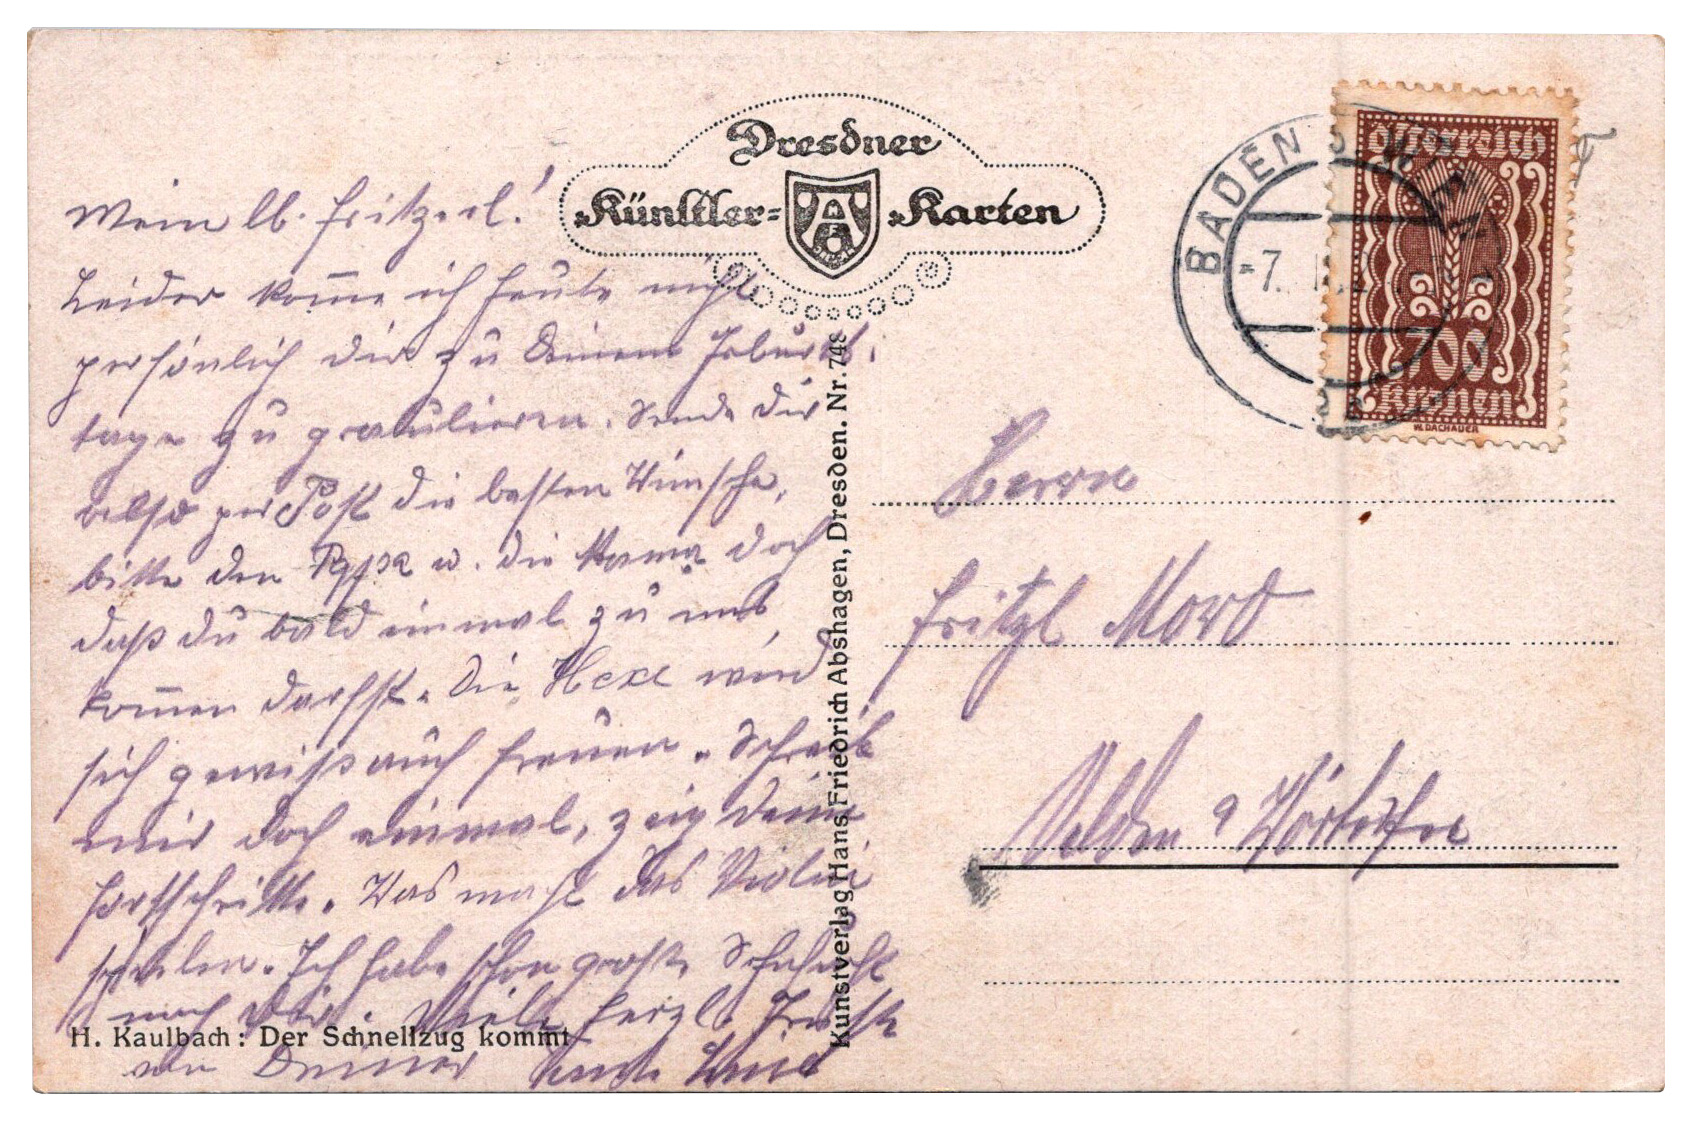 Dresdner
Künstler-Karten
BADEN B. WIEN
-7.
Österreich
700
Kronen
W. DACHAUER
Mein lb. Fritzerl!
Leider kom̄e ich heute nicht
persönlich dir zu Deinem Geburts-
tage zu gratulieren. Sende dir
also per Post die besten Wünsche,
bitte den Papa u. die Mama doch
daß du bald einmal zu uns
kom̄en darfst. Die Hexe wird
sich gewiß auch freuen. Schreib
mir doch einmal, zeig deine
Fortschritte. Was macht das Violin
spielen. Ich habe schon große Sehnsucht
nach Dir. Viele herzl. Grüße
von Deiner Tante
H. Kaulbach: Der Schnellzug kommt
Kunstverlag Hans Friedrich Abshagen, Dresden. Nr. 748
Herrn
Fritzl
Velden a Wörthersee